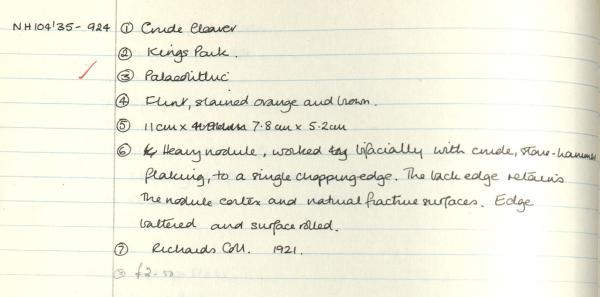 NH104'35-924 ① Crude Cleaver
② Kings Park.
③ Palaeolithic
④ Flint, stained orange and brown.
⑤ 11cm x 7.8cm x 5.2cm
⑥ Heavy nodule, worked bifacially with crude, stone-hammer
flaking, to a single chopping edge. The back edge retains
the nodule cortex and natural fracture surfaces. Edge
battered and surface rolled.
⑦ Richards Coll. 1921.
⑧ £2.50